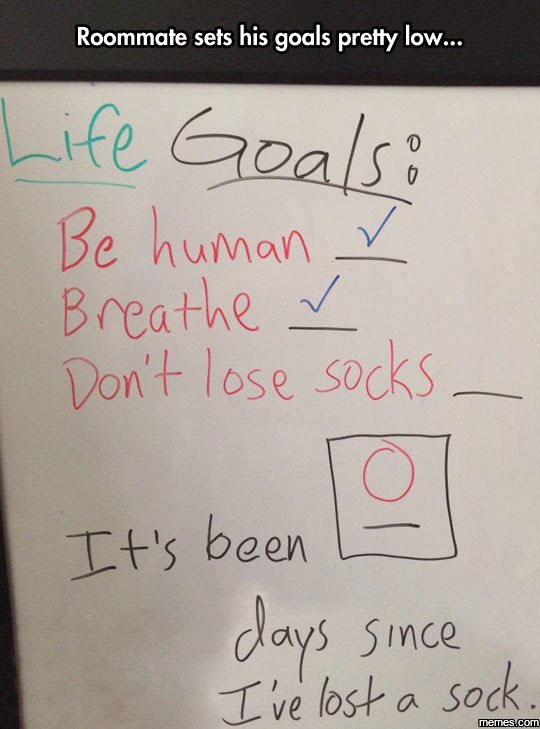 Roommate sets his goals pretty low...
Life Goals:
Be human ✓
Breathe ✓
Don't lose socks __
It's been 0
days since
I've lost a sock.
memes.com